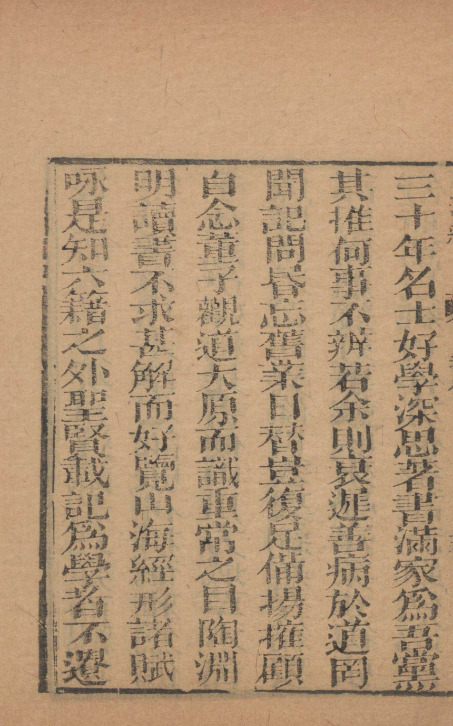 三十年名士好學深思著書滿家爲吾黨
其推何事不辨若余則衰遲善病於道罔
聞記問昏忘舊業日替豈復足備揚搉顧
自念董子觀道大原而識重常之目陶淵
明讀書不求甚解而好覽山海經形諸賦
咏是知六籍之外聖賢載記爲學者不遺